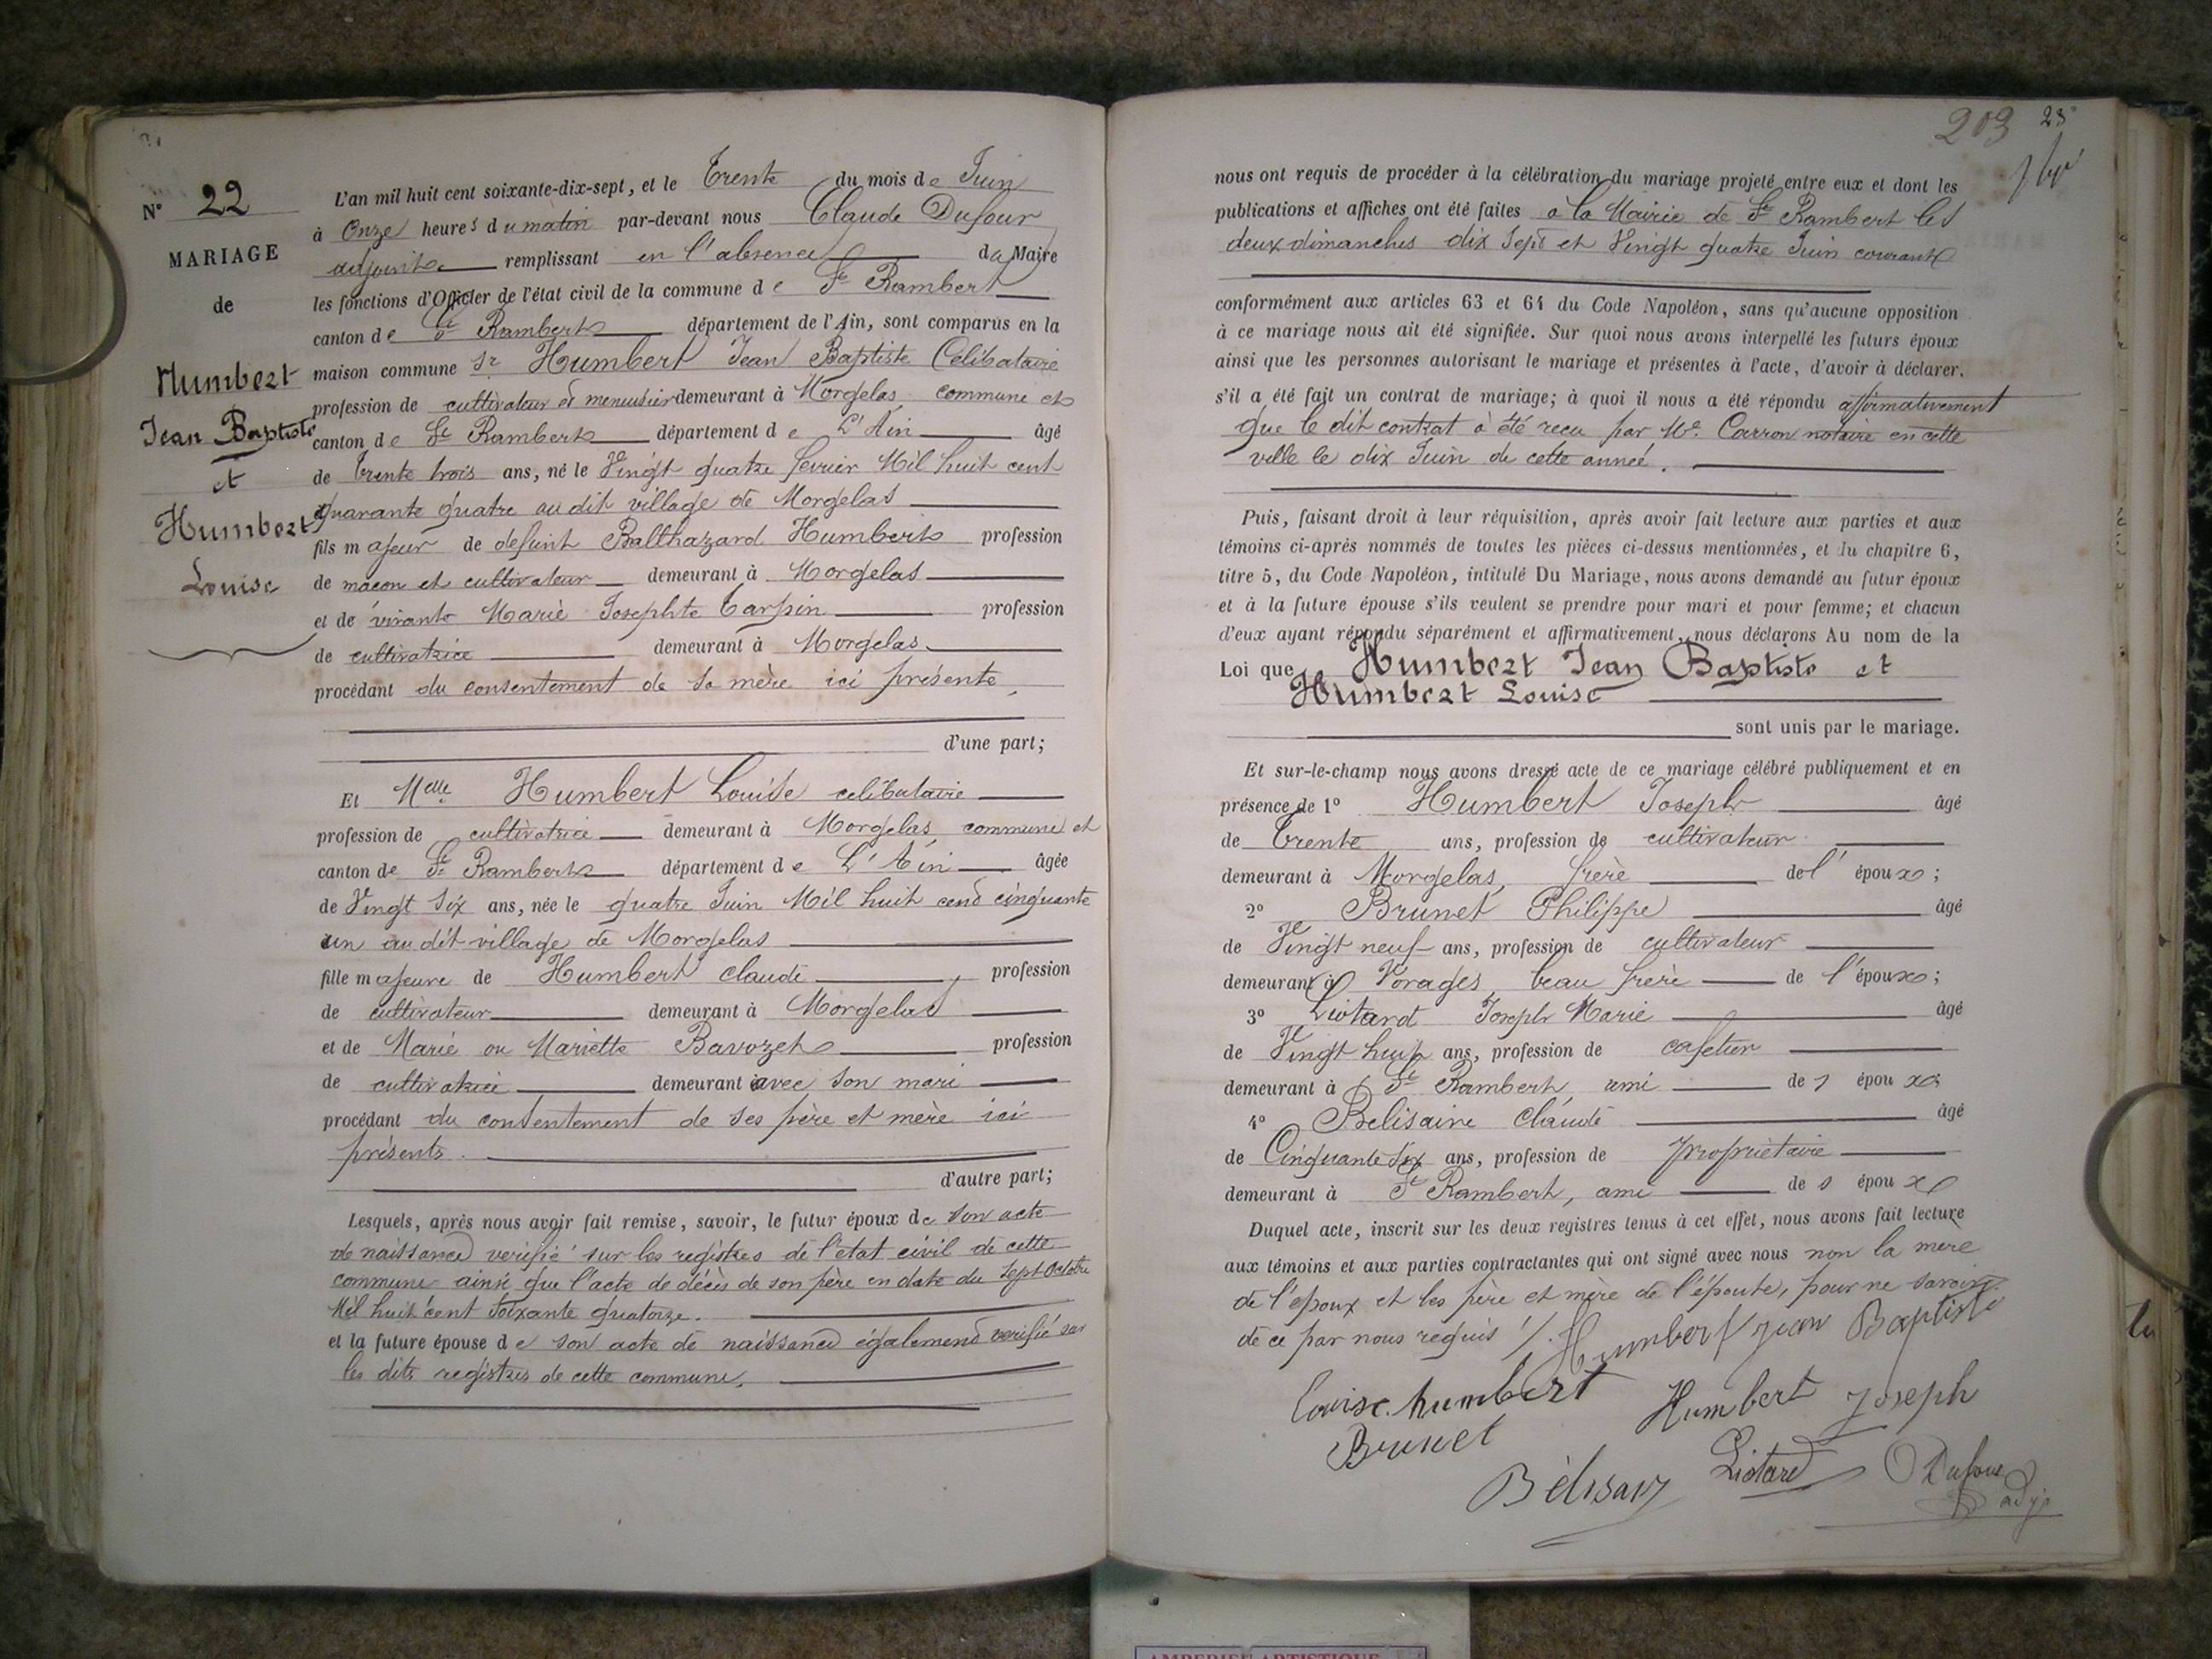 N° 22
MARIAGE
de
Humbert
Jean Baptiste
et
Humbert
Louise
L'an mil huit cent soixante-dix-sept, et le Trente du mois de Juin
à Onze heures du matin par-devant nous Claude Dufour
adjoint remplissant en l'absence du Maire
les fonctions d'Officier de l'état civil de la commune de St Rambert
canton de St Rambert département de l'Ain, sont comparus en la
maison commune Sr Humbert Jean Baptiste Célibataire
profession de cultivateur et menuisier demeurant à Morgelas commune et
canton de St Rambert département de L'Ain âgé
de Trente trois ans, né le Vingt quatre fevrier Mil huit cent
quarante quatre au dit village de Morgelas
fils majeur de defunt Balthazard Humbert profession
de macon et cultivateur demeurant à Morgelas
et de vivante Marie Josephte Carpin profession
de cultivatrice demeurant à Morgelas
procédant du consentement de sa mère ici présente,
d'une part;
Et Melle Humbert Louise celibataire
profession de cultivatrice demeurant à Morgelas commune et
canton de St Rambert département de L'Ain âgée
de Vingt Six ans, née le quatre Juin Mil huit cent cinquante
un au dit village de Morgelas
fille majeure de Humbert Claude, profession
de cultivateur demeurant à Morgelas
et de Marie ou Mariette Bavozet profession
de cultivatrice demeurant avec son mari
procédant du consentement de ses père et mère ici
présents.
d'autre part;
Lesquels, après nous avoir fait remise, savoir, le futur époux de son acte
de naissance verifié sur les registres de l'etat civil de cette
commune ainsi que l'acte de décès de son père en date du Sept Octobre
Mil huit cent Soixante quatorze.
et la future épouse de son acte de naissance également verifié sur
les dits registres de cette commune.
203 23
nous ont requis de procéder à la célébration du mariage projeté entre eux et dont les
publications et affiches ont été faites à la Mairie de St Rambert les
deux dimanches dix Sept et Vingt quatre Juin courant
conformément aux articles 63 et 64 du Code Napoléon, sans qu'aucune opposition
à ce mariage nous ait été signifiée. Sur quoi nous avons interpellé les futurs époux
ainsi que les personnes autorisant le mariage et présentes à l'acte, d'avoir à déclarer,
s'il a été fait un contrat de mariage; à quoi il nous a été répondu affirmativement
que le dit contrat à été recu par Me. Carron notaire en cette
ville le dix Juin de cette année.
Puis, faisant droit à leur réquisition, après avoir fait lecture aux parties et aux
témoins ci-après nommés de toutes les pièces ci-dessus mentionnées, et du chapitre 6,
titre 5, du Code Napoléon, intitulé Du Mariage, nous avons demandé au futur époux
et à la future épouse s'ils veulent se prendre pour mari et pour femme; et chacun
d'eux ayant répondu séparément et affirmativement, nous déclarons Au nom de la
Loi que Humbert Jean Baptiste et
Humbert Louise
sont unis par le mariage.
Et sur-le-champ nous avons dressé acte de ce mariage célébré publiquement et en
présence de 1° Humbert Joseph âgé
de Trente ans, profession de cultivateur
demeurant à Morgelas, frère de l'époux;
2° Brunet Philippe âgé
de Vingt neuf ans, profession de cultivateur
demeurant à Vorages, beau frère de l'époux;
3° Liotard Joseph Marie âgé
de Vingt huit ans, profession de cafetier
demeurant à St Rambert, ami des époux;
4° Belisaire Claude âgé
de Cinquante Six ans, profession de propriétaire
demeurant à St Rambert, ami des époux
Duquel acte, inscrit sur les deux registres tenus à cet effet, nous avons fait lecture
aux témoins et aux parties contractantes qui ont signé avec nous non la mère
de l'epoux et les père et mère de l'épouse, pour ne savoir
de ce par nous requis /. Humbert jean Baptiste
Louise humbert Humbert joseph
Brunet
Liotard Dufour
adj
AMBERIEU ARTISTIQUE